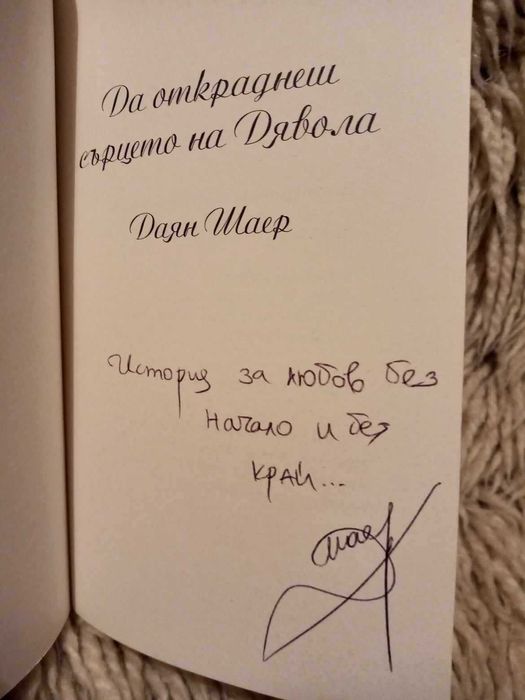 Да откраднеш
сърцето на Дявола
Даян Шаер
История за любов без
начало и без
край...
Шаер